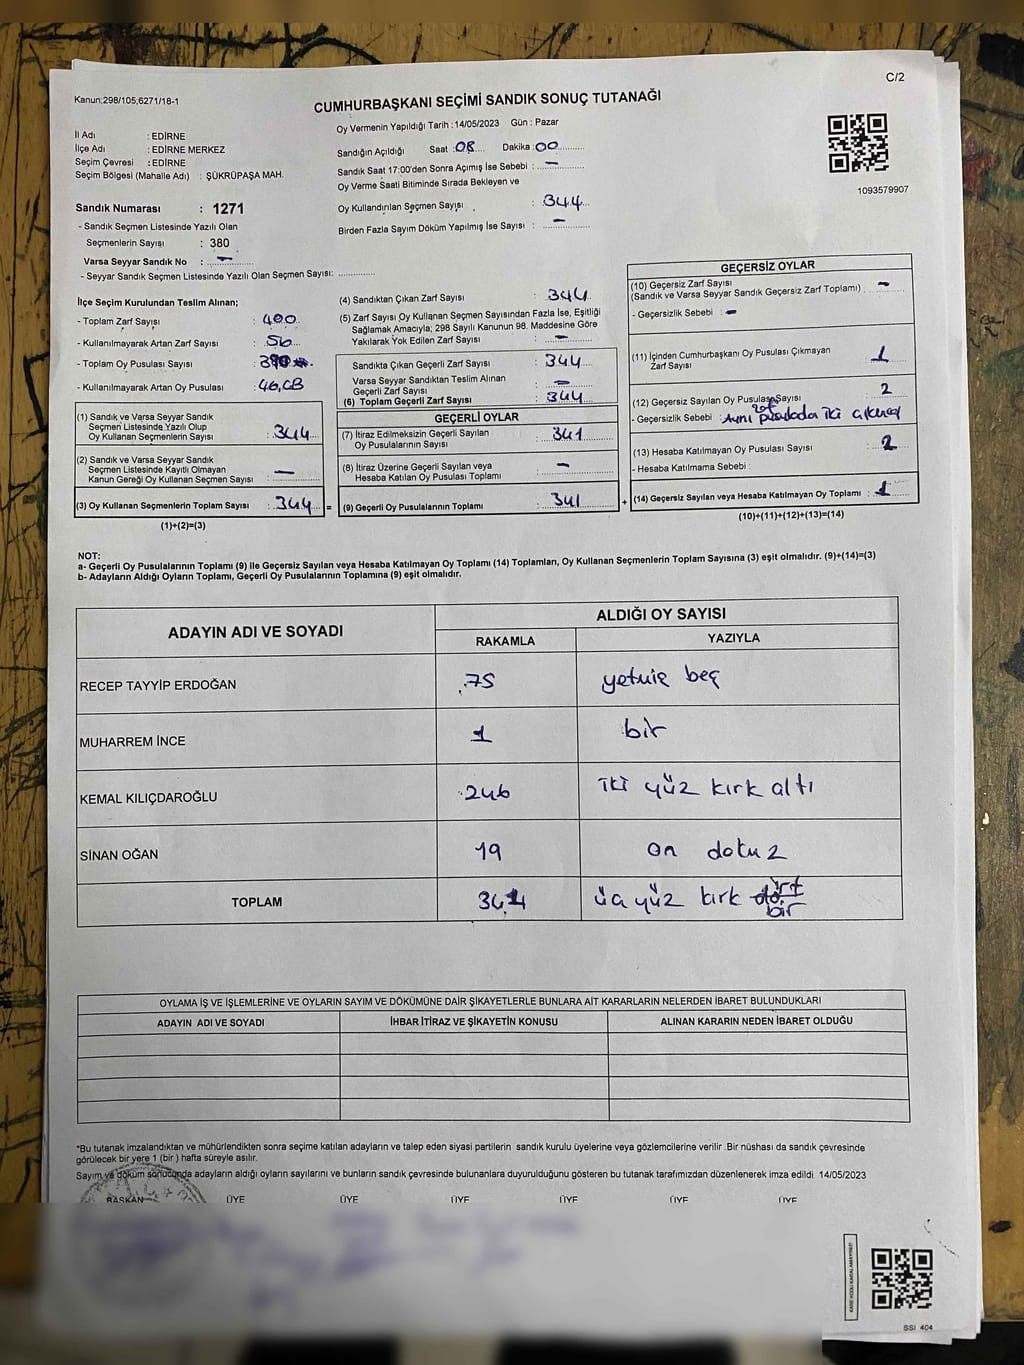 C/2
Kanun;298/105;6271/18-1
CUMHURBAŞKANI SEÇİMİ SANDIK SONUÇ TUTANAĞI
İl Adı : EDİRNE
İlçe Adı : EDİRNE MERKEZ
Seçim Çevresi : EDİRNE
Seçim Bölgesi (Mahalle Adı) : ŞÜKRÜPAŞA MAH.
Sandık Numarası : 1271
- Sandık Seçmen Listesinde Yazılı Olan
Seçmenlerin Sayısı : 380
Varsa Seyyar Sandık No : –
- Seyyar Sandık Seçmen Listesinde Yazılı Olan Seçmen Sayısı: ............
Oy Vermenin Yapıldığı Tarih : 14/05/2023 Gün : Pazar
Sandığın Açıldığı Saat : 08 Dakika : 00
Sandık Saat 17:00'den Sonra Açımış İse Sebebi : –
Oy Verme Saati Bitiminde Sırada Bekleyen ve
Oy Kullandırılan Seçmen Sayısı : 344
Birden Fazla Sayım Döküm Yapılmış İse Sayısı : –
1093579907
İlçe Seçim Kurulundan Teslim Alınan;
- Toplam Zarf Sayısı : 400
- Kullanılmayarak Artan Zarf Sayısı : 56
- Toplam Oy Pusulası Sayısı :
- Kullanılmayarak Artan Oy Pusulası : 46
(1) Sandık ve Varsa Seyyar Sandık
Seçmen Listesinde Yazılı Olup
Oy Kullanan Seçmenlerin Sayısı : 344
(2) Sandık ve Varsa Seyyar Sandık
Seçmen Listesinde Kayıtlı Olmayan
Kanun Gereği Oy Kullanan Seçmen Sayısı : –
(3) Oy Kullanan Seçmenlerin Toplam Sayısı : 344 =
(1)+(2)=(3)
(4) Sandıktan Çıkan Zarf Sayısı : 344
(5) Zarf Sayısı Oy Kullanan Seçmen Sayısından Fazla İse, Eşitliği
Sağlamak Amacıyla; 298 Sayılı Kanunun 98. Maddesine Göre
Yakılarak Yok Edilen Zarf Sayısı : –
Sandıkta Çıkan Geçerli Zarf Sayısı : 344
Varsa Seyyar Sandıktan Teslim Alınan
Geçerli Zarf Sayısı : –
(6) Toplam Geçerli Zarf Sayısı : 344
GEÇERLİ OYLAR
(7) İtiraz Edilmeksizin Geçerli Sayılan
Oy Pusulalarının Sayısı : 341
(8) İtiraz Üzerine Geçerli Sayılan veya
Hesaba Katılan Oy Pusulası Toplamı : –
(9) Geçerli Oy Pusulalarının Toplamı : 341 +
GEÇERSİZ OYLAR
(10) Geçersiz Zarf Sayısı : –
(Sandık ve Varsa Seyyar Sandık Geçersiz Zarf Toplamı)
- Geçersizlik Sebebi : –
(11) İçinden Cumhurbaşkanı Oy Pusulası Çıkmayan
Zarf Sayısı : 1
(12) Geçersiz Sayılan Oy Pusulası Sayısı : 2
- Geçersizlik Sebebi : Aynı zarf pusulada iki
(13) Hesaba Katılmayan Oy Pusulası Sayısı : 2
- Hesaba Katılmama Sebebi :
(14) Geçersiz Sayılan veya Hesaba Katılmayan Oy Toplamı : 1
(10)+(11)+(12)+(13)=(14)
NOT:
a- Geçerli Oy Pusulalarının Toplamı (9) ile Geçersiz Sayılan veya Hesaba Katılmayan Oy Toplamı (14) Toplamları, Oy Kullanan Seçmenlerin Toplam Sayısına (3) eşit olmalıdır. (9)+(14)=(3)
b- Adayların Aldığı Oyların Toplamı, Geçerli Oy Pusulalarının Toplamına (9) eşit olmalıdır.
ADAYIN ADI VE SOYADI ALDIĞI OY SAYISI
RAKAMLA YAZIYLA
RECEP TAYYİP ERDOĞAN 75 yetmiş beş
MUHARREM İNCE 1 bir
KEMAL KILIÇDAROĞLU 246 iki yüz kırk altı
SİNAN OĞAN 19 on dokuz
TOPLAM 341 üç yüz kırk bir
OYLAMA İŞ VE İŞLEMLERİNE VE OYLARIN SAYIM VE DÖKÜMÜNE DAİR ŞİKAYETLERLE BUNLARA AİT KARARLARIN NELERDEN İBARET BULUNDUKLARI
ADAYIN ADI VE SOYADI İHBAR İTİRAZ VE ŞİKAYETİN KONUSU ALINAN KARARIN NEDEN İBARET OLDUĞU
*Bu tutanak imzalandıktan ve mühürlendikten sonra seçime katılan adayların ve talep eden siyasi partilerin sandık kurulu üyelerine veya gözlemcilerine verilir. Bir nüshası da sandık çevresinde
görülecek bir yere 1 (bir) hafta süreyle asılır.
Sayım ve döküm sonucunda adayların aldığı oyların sayılarını ve bunların sandık çevresinde bulunanlara duyurulduğunu gösteren bu tutanak tarafımızdan düzenlenerek imza edildi 14/05/2023
BAŞKAN ÜYE ÜYE ÜYE ÜYE ÜYE ÜYE
SSI 404